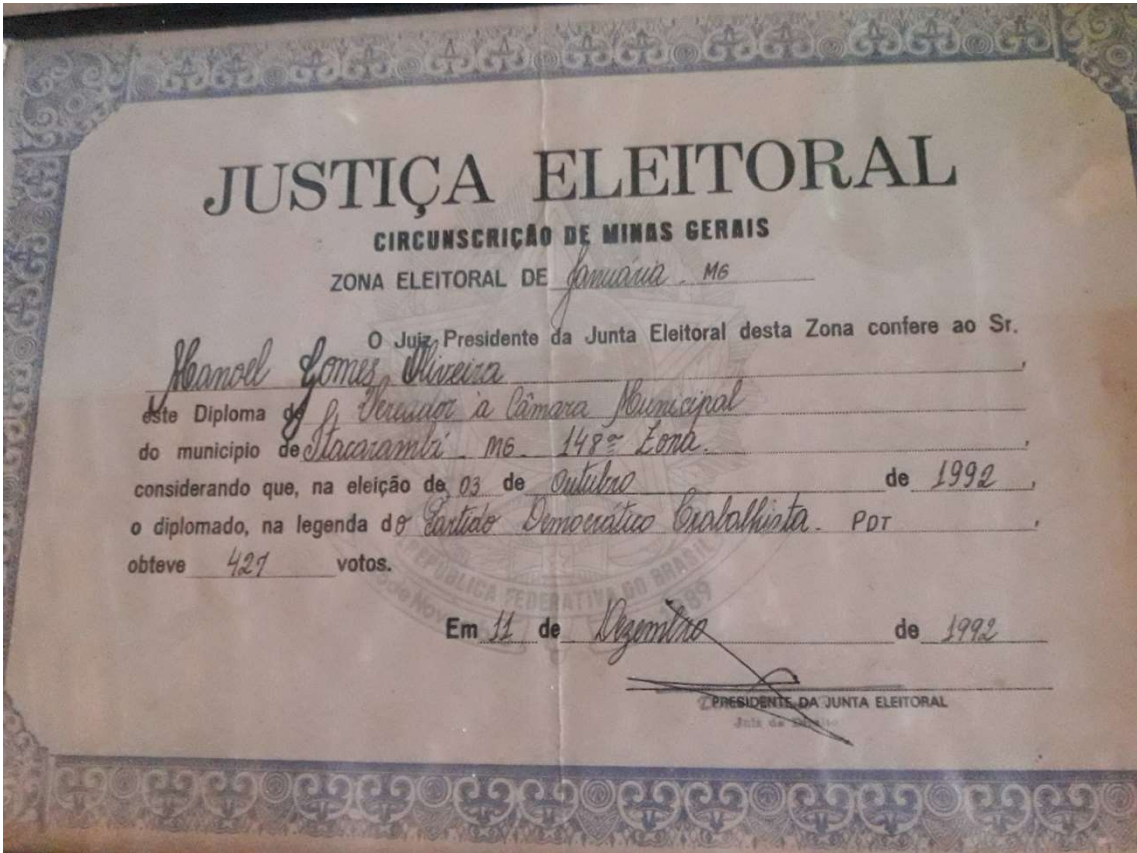 JUSTIÇA ELEITORAL
CIRCUNSCRIÇÃO DE MINAS GERAIS
ZONA ELEITORAL DE Januária - MG
O Juiz Presidente da Junta Eleitoral desta Zona confere ao Sr.
Manoel Gomes Oliveira,
este Diploma de Vereador à Câmara Municipal
do municipio de Itacarambi - MG - 148ª Zona.,
considerando que, na eleição de 03 de Outubro de 1992,
o diplomado, na legenda do Partido Democrático Trabalhista - PDT,
obteve 427 votos.
REPÚBLICA FEDERATIVA DO BRASIL
Em 11 de Dezembro de 1992
PRESIDENTE DA JUNTA ELEITORAL
Juiz de Direito